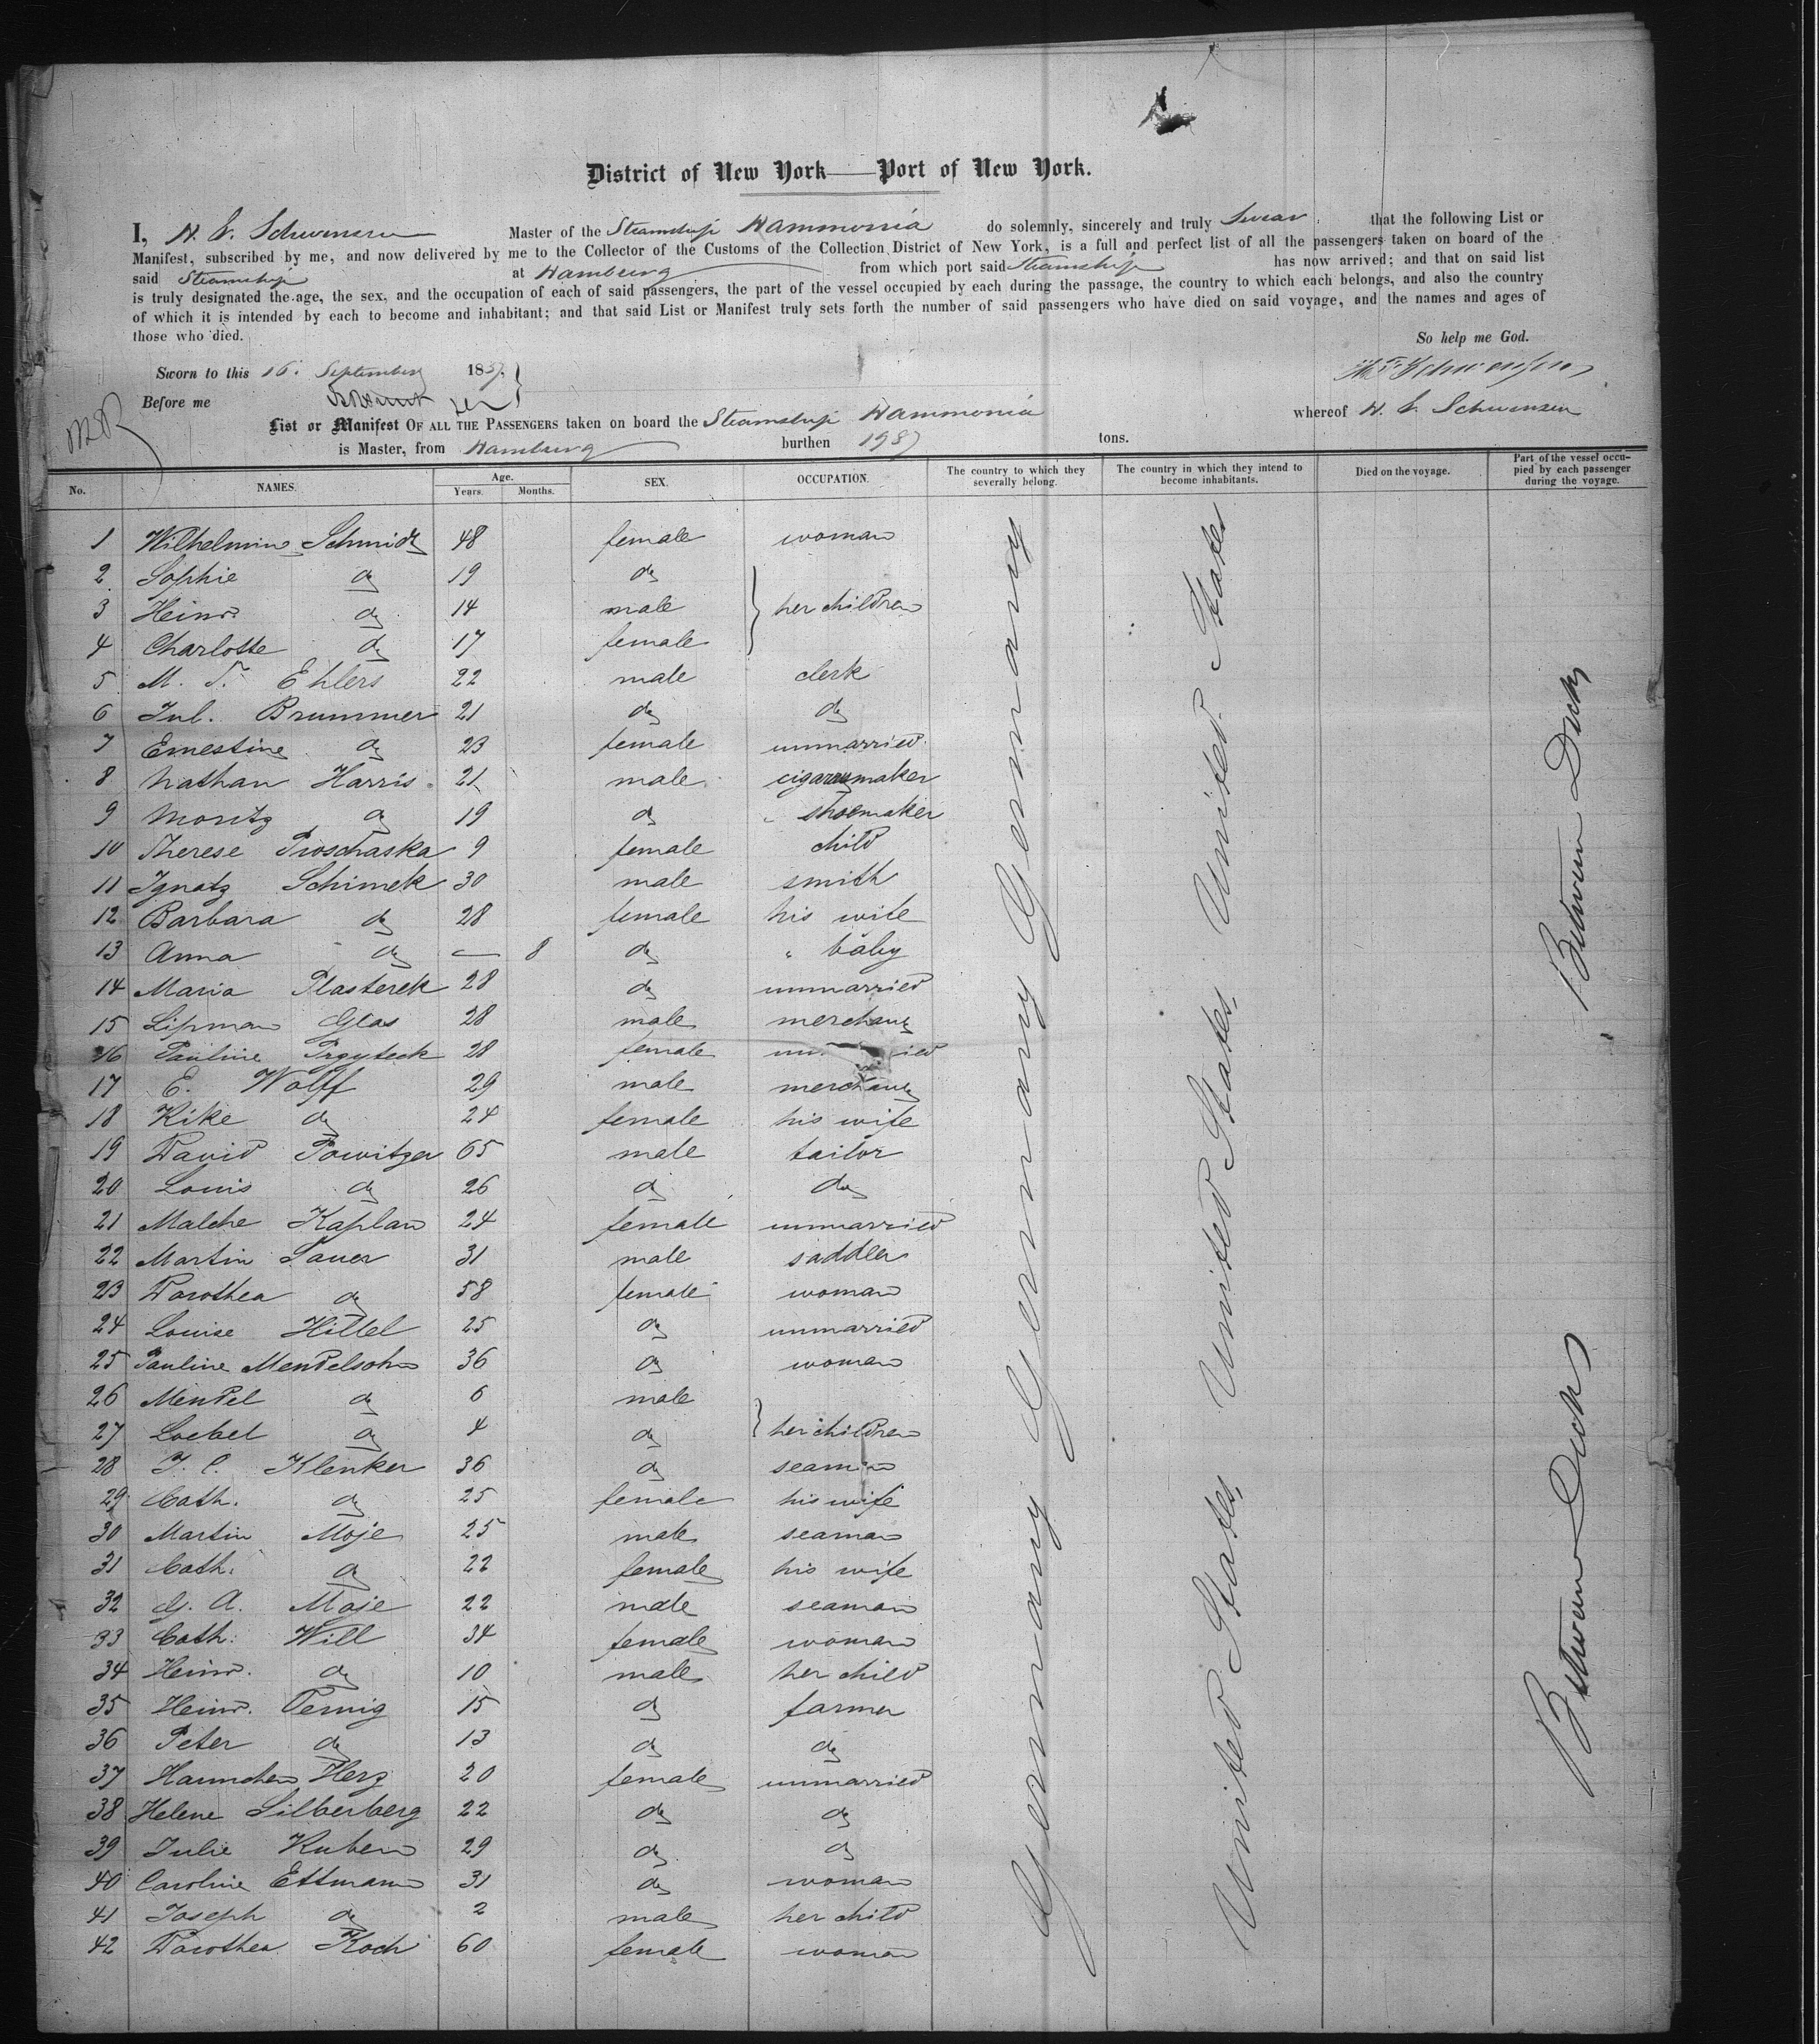 District of New York — Port of New York.
I, H. F. Schwensen Master of the Steamship Hammonia do solemnly, sincerely and truly Swear that the following List or
Manifest, subscribed by me, and now delivered by me to the Collector of the Customs of the Collection District of New York, is a full and perfect list of all the passengers taken on board of the
said Steamship at Hamburg from which port said Steamship has now arrived; and that on said list
is truly designated the age, the sex, and the occupation of each of said passengers, the part of the vessel occupied by each during the passage, the country to which each belongs, and also the country
of which it is intended by each to become and inhabitant; and that said List or Manifest truly sets forth the number of said passengers who have died on said voyage, and the names and ages of
those who died.
So help me God.
Sworn to this 16. September 18
Before me
List or Manifest OF ALL THE PASSENGERS taken on board the Steamship Hammonia whereof H. F. Schwensen
is Master, from Hamburg burthen 1987 tons.
No. NAMES. Age. Years. Months. SEX. OCCUPATION. The country to which they severally belong. The country in which they intend to become inhabitants. Died on the voyage. Part of the vessel occupied by each passenger during the voyage.
1 Wilhelmine Schmidt 48 female woman
2 Sophie do 19 do
3 Heinr. do 14 male her children
4 Charlotte do 17 female
5 M. T. Ehlers 22 male clerk
6 Jul. Brummer 21 do do
7 Ernestine do 23 female unmarried
8 Nathan Harris 21 male cigarrmaker
9 Moritz do 19 do shoemaker
10 Therese Proschaska 9 female child
11 Ignatz Schimek 30 male smith
12 Barbara do 28 female his wife
13 Anna do — 8 do " baby
14 Maria Plasterek 28 do unmarried
15 Lipman Glas 28 male merchant
16 Pauline Prgyteck 28 female
17 E. Wolff 29 male merchant
18 Rike do 24 female his wife
19 David Powitzer 65 male tailor
20 Louis do 26 do do
21 Malche Kaplan 24 female unmarried
22 Martin Sauer 31 male saddler
23 Dorothea do 58 female woman
24 Louise Hittel 25 do unmarried
25 Pauline Mendelsohn 36 do woman
26 Mendel do 6 male
27 Loebel do 4 do her children
28 J. C. Klenker 36 do seaman
29 Cath. do 25 female his wife
30 Martin Moje 25 male seaman
31 Cath. do 22 female his wife
32 G. A. Moje 22 male seaman
33 Cath. Will 34 female woman
34 Heinr. do 10 male her child
35 Heinr. 15 do farmer
36 Peter do 13 do do
37 Hannchen Herz 20 female unmarried
38 Helene Silberberg 22 do do
39 Julie Ruben 29 do do
40 Caroline Ettmann 31 do woman
41 Joseph do 2 male her child
42 Dorothea Koch 60 female woman
Germany Germany Germany Germany
United States United States United States
Between Deck Between Deck